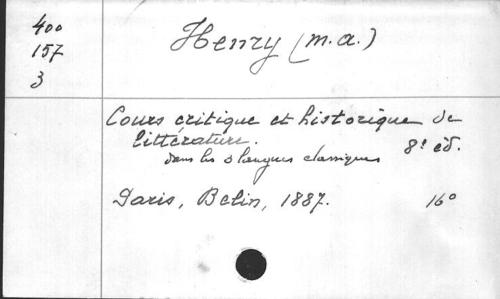 400
157
3
Henry (m.a.)
Cours critique et historique de
littérature. 8e éd.
dans les 3 langues classiques
Paris, Belin, 1887. 16°